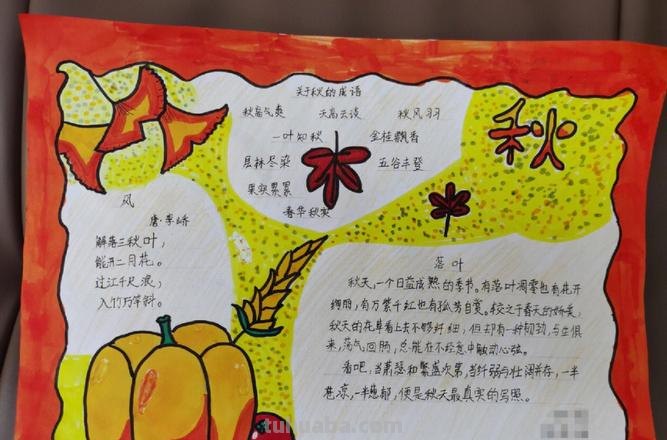 关于秋的成语
秋高气爽 天高云淡 秋风习习
一叶知秋 金桂飘香
层林尽染 五谷丰登
果实累累
春华秋实
秋
风
唐·李峤
解落三秋叶，
能开二月花。
过江千尺浪，
入竹万竿斜。
落叶
秋天，一个日益成熟的季节。有落叶凋零也有花开
绚丽，有万紫千红也有孤芳自赏。较之于春天的娇柔，
秋天的花草看上去不够纤细，但却有一种韧劲，与生俱
来，荡气回肠，总能在不经意中触动心弦。
看吧，当萧瑟和繁盛次第，当纤弱与壮阔并存，一半
苍凉，一半葱郁，便是秋天最真实的写照。
tuhuaba.com